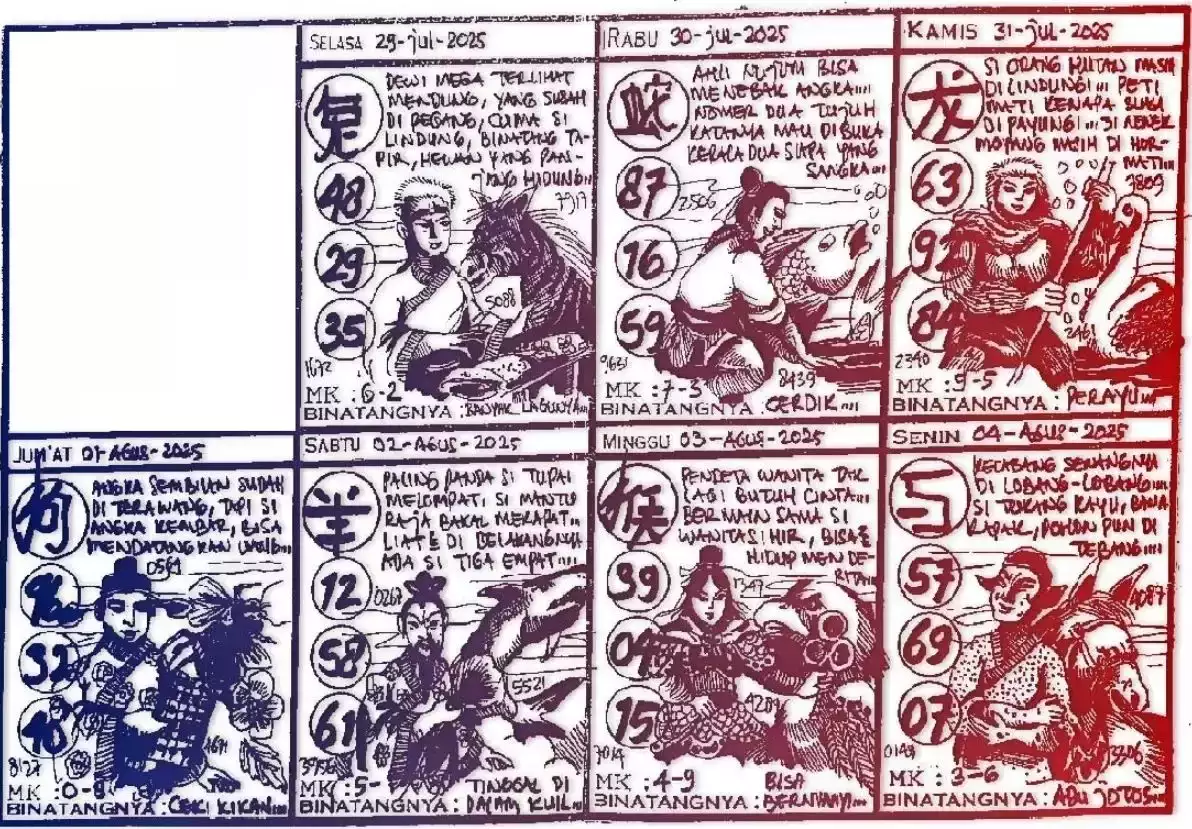 SELASA 29-jul-2025
DEWI MEGA TERLIHAT
MENDUNG, YANG SUDAH
DI PEGANG, CUMA SI
LINDUNG, BINATANG TA-
PIR, HEWAN YANG PAN-
JANG HIDUNG...
兔
48
29
35
7917
5088
1672
MK : 6-2
BINATANGNYA : BANYAK LAGUNYA...
RABU 30-jul-2025
AHLI NUJUM BISA
MENEBAK ANGKA....
NOMER DUA TUJUH
KATANYA MAU DIBUKA
KEPALA DUA SIAPA YANG
SANGKA....
蛇
87
16
59
2506
9631
8439
MK : 7-3
BINATANGNYA : CERDIK....
KAMIS 31-jul-2025
SI ORANG HUTAN MASIH
DI LINDUNGI... PETI
MATI KENAPA
DI PAYUNGI... SI NENEK
MOYANG MASIH DI HOR-
MATI....
龙
63
92
84
7809
2461
2340
MK : 9-5
BINATANGNYA : PERAYU....
JUM'AT 01-AGUS-2025
ANGKA SEMBILAN SUDAH
DI TERAWANG, TAPI SI
ANGKA KEMBAR, BISA
MENDATANGKAN UANG...
狗
96
32
0561
8127
MK : 0-8
BINATANGNYA : CEKI KIKAN....
SABTU 02-AGUS-2025
PALING PANDAI SI TUPAI
MELOMPAT, SI MANTU
RAJA BAKAL MERAPAT...
LIATE DI BELAKANGNYA
ADA SI TIGA EMPAT....
羊
12
58
61
0267
5521
MK : 5-
BINATANGNYA : TINGGAL DI
DALAM KUIL...
MINGGU 03-AGUS-2025
PENDETA WANITA TAK
LAGI BUTUH CINTA...
BERMAIN SAMA SI
WANITA SIHIR, BISAE
HIDUP MENDE-
RITA...
猴
39
04
15
MK : 4-9
BINATANGNYA : BISA
BERNYANYI...
SENIN 04-AGUS-2025
KECABANG SENANGNYA
DI LOBANG-LOBANG....
SI TUKANG KAYU, BAWA
KAPAK, POHON PUN DI
TEBANG....
57
69
07
0148
MK : 3-6
BINATANGNYA : ADU JOTOS...